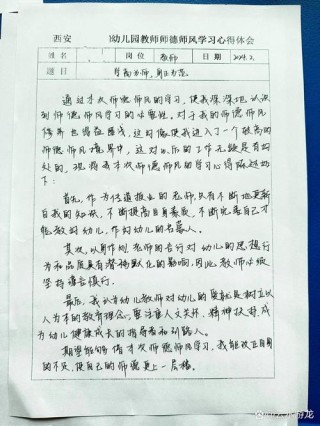 西安 幼儿园教师师德师风学习心得体会
姓名 岗位 教师 日期 2024.2.
题目 学高为师，身正为范
通过本次师德师风的学习，使我深深地认识
到师德师风学习的必要性，对于我的师德师风
修养也得益匪浅，这匀像使我进入了一个较高的
师德师风境界中，这对以后的工作无疑是有好
处的，现将本次师德师风的学习心得陈述如
下：
首先，作为传道授业的老师，只有不断地更新
自我的知识，不断提高自身素质，不断完善自己才
能教幼儿，作幼儿的启蒙人。
其次，以身作则，老师的言行对幼儿的思想行
为和品质具有潜移默化的影响，因此教师必须
坚持谨言慎行。
最后，我认为幼儿教师对幼儿的 就是树立以
人为本的教育理念，要注意人文关怀，精神扶持，成
为幼儿健康成长的指导者和引路人。
期望能够借本次师德师风学习，我能改正自身
的不足，使自己的师德更上一层楼。